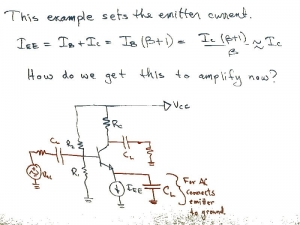 This example sets the emitter current.
I_EE = I_B + I_C = I_B (β+1) = I_C (β+1)/β ≈ I_C
How do we get this to amplify now?
V_CC
R_C
C_L
R_2
C_L
R_1
I_EE
C_L
For AC
connects
emitter
to ground.